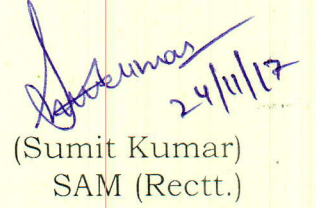 Skumar
24/11/17
(Sumit Kumar)
SAM (Rectt.)